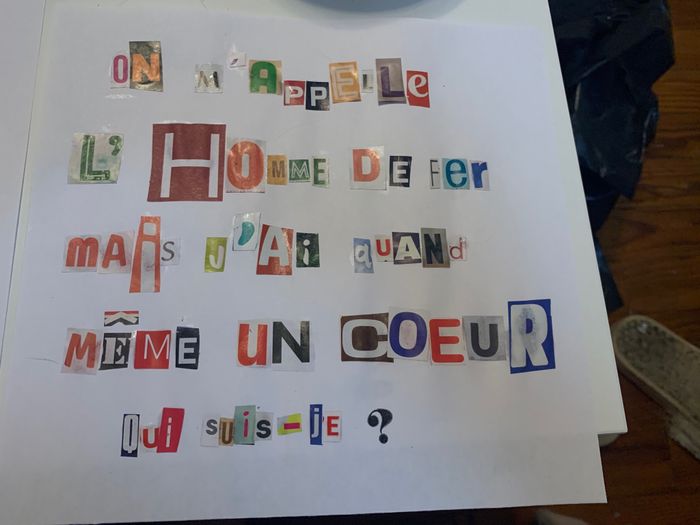 ON M'APPELLE
L'HOMME DE FER
MAiS J'Ai QUAND
MÊME UN COEUR
Qui suis-JE ?